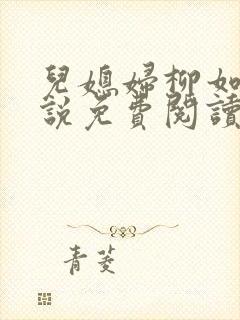 兒媳婦柳如
說免費閱讀
青菱